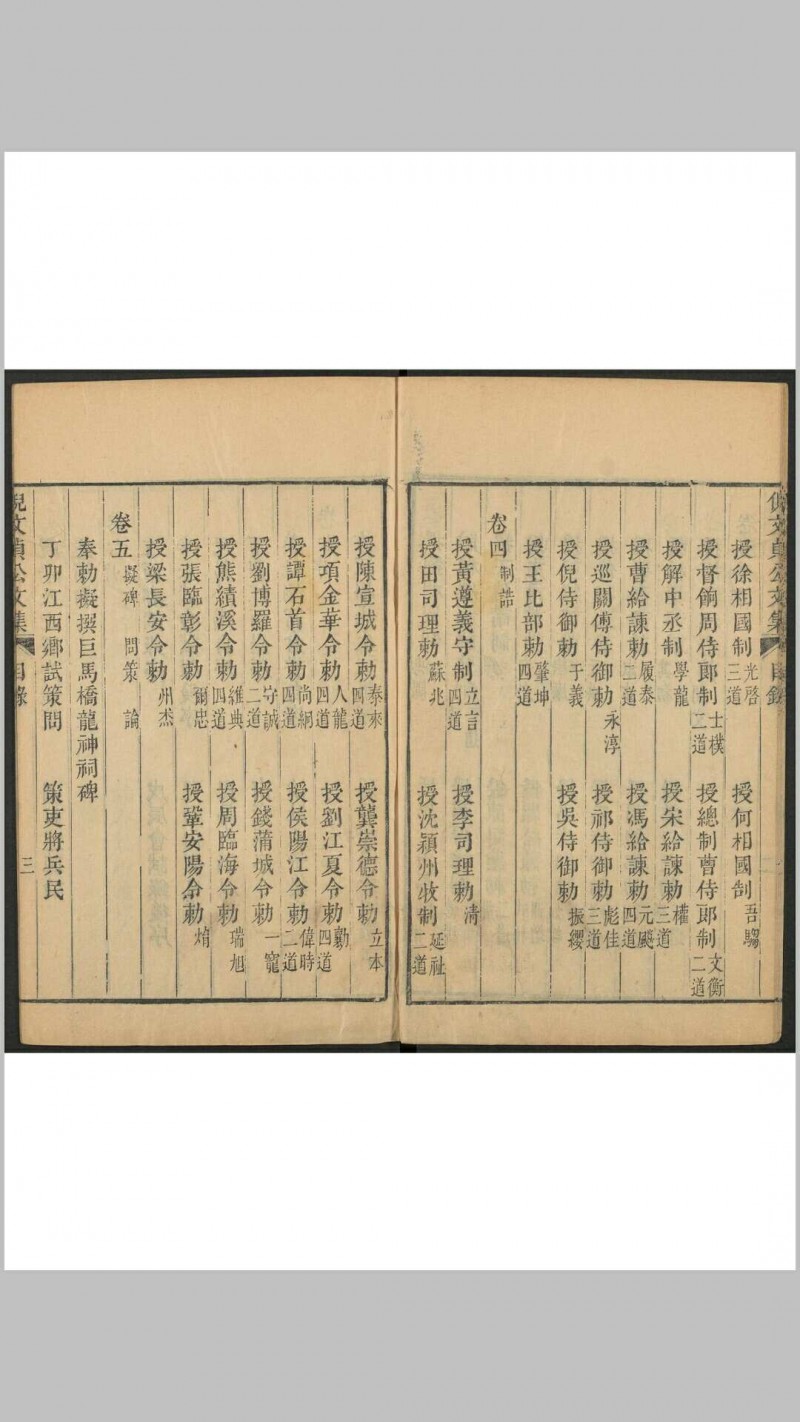 倪文貞公文集 目錄
授徐相國制 光啓 三道 授何相國制 吾騶
授督餉周侍郎制 士樸 二道 授總制曹侍郎制 文衡 二道
授解中丞制 學龍 授宋給諫勅 權 三道
授曹給諫勅 履泰 二道 授馮給諫勅 元颷 四道
授巡關傅侍御勅 永淳 授祁侍御勅 彪佳 三道
授倪侍御勅 于義 授吳侍御勅 振纓
授王比部勅 肇坤 四道
卷四 制誥
授黃遵義守制 立言 四道 授李司理勅 清
授田司理勅 蘇兆 授沈潁州牧制 延祉 二道
授陳宣城令勅 泰來 四道 授龔崇德令勅 立本
授項金華令勅 人龍 四道 授劉江夏令勅 勷 四道
授譚石首令勅 尚絅 四道 授侯陽江令勅 偉時 二道
授劉博羅令勅 守誠 二道 授錢蒲城令勅 一寵
授熊績溪令勅 維典 四道 授周臨海令勅 瑞旭
授張臨彰令勅 爾忠 授鞏安陽令勅 焴
授梁長安令勅 州杰
卷五 擬碑 問策 論
奉勅擬撰巨馬橋龍神祠碑
丁卯江西鄉試策問 策吏將兵民
倪文貞公文集 目錄 三